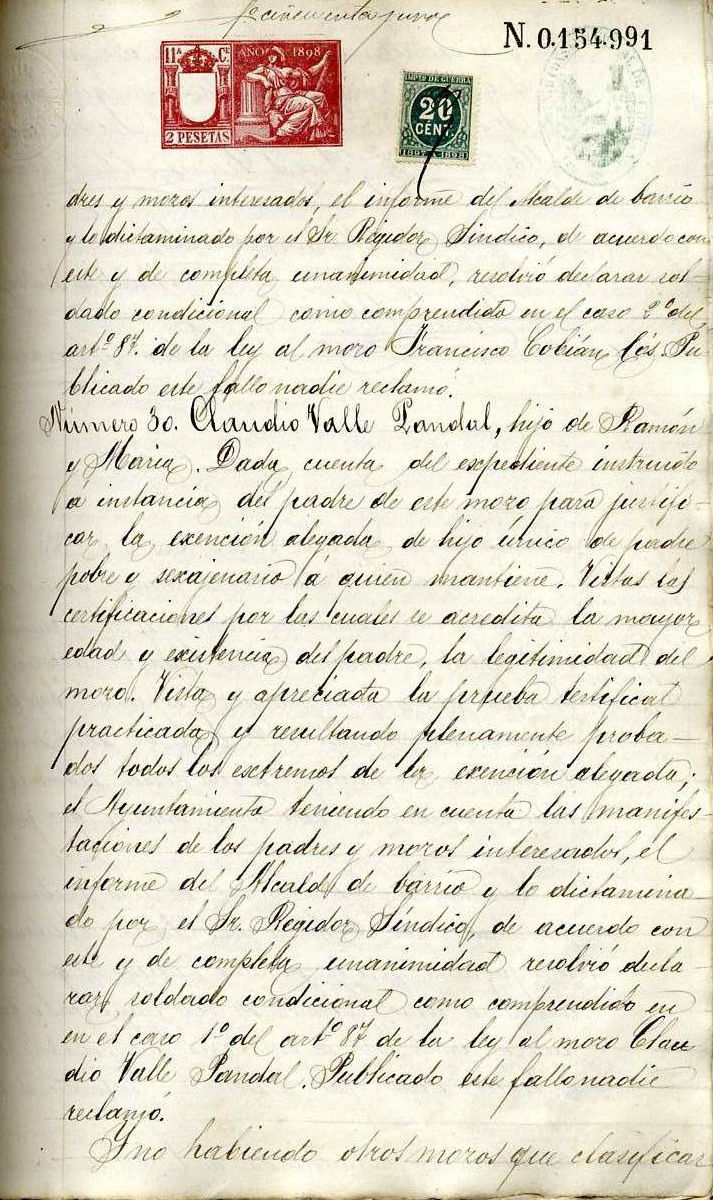 cincuenta y nueve
N. 0.154.991
11ª Cᴱ AÑO 1898
2 PESETAS
IMPTO DE GUERRA
20
CENT.
1897 A 1898
dres y mozos interesados, el informe del Alcalde de barrio
y lo dictaminado por el Sr. Regidor Síndico, de acuerdo con
este y de completa unanimidad, resolvió declarar sol-
dado condicional como comprendido en el caso 2º del
artº 87. de la ley al mozo Francisco Cobián Cós. Pu-
blicado este fallo nadie reclamó.
Número 30. Claudio Valle Pandal, hijo de Ramón
y Maria. Dada cuenta del expediente instruido
a instancia del padre de este mozo para justifi-
car la exención alegada de hijo único de padre
pobre y sexajenario á quien mantiene. Vistas las
certificaciones por las cuales se acredita la mayor
edad y existencia del padre, la legitimidad del
mozo. Vista y apreciada la prueba testifical
practicada y resultando plenamente proba-
dos todos los extremos de la exención alegada;
el Ayuntamiento teniendo en cuenta las manifes-
taciones de los padres y mozos interesados, el
informe del Alcald de barrio y lo dictamina-
do por el Sr. Regidor Síndico, de acuerdo con
este y de completa unanimidad resolvió decla-
rar soldado condicional como comprendido en
en el caso 1º del artº 87 de la ley al mozo Clau
dio Valle Pandal. Publicado este fallo nadie
reclamó.
Y no habiendo otros mozos que clasificar